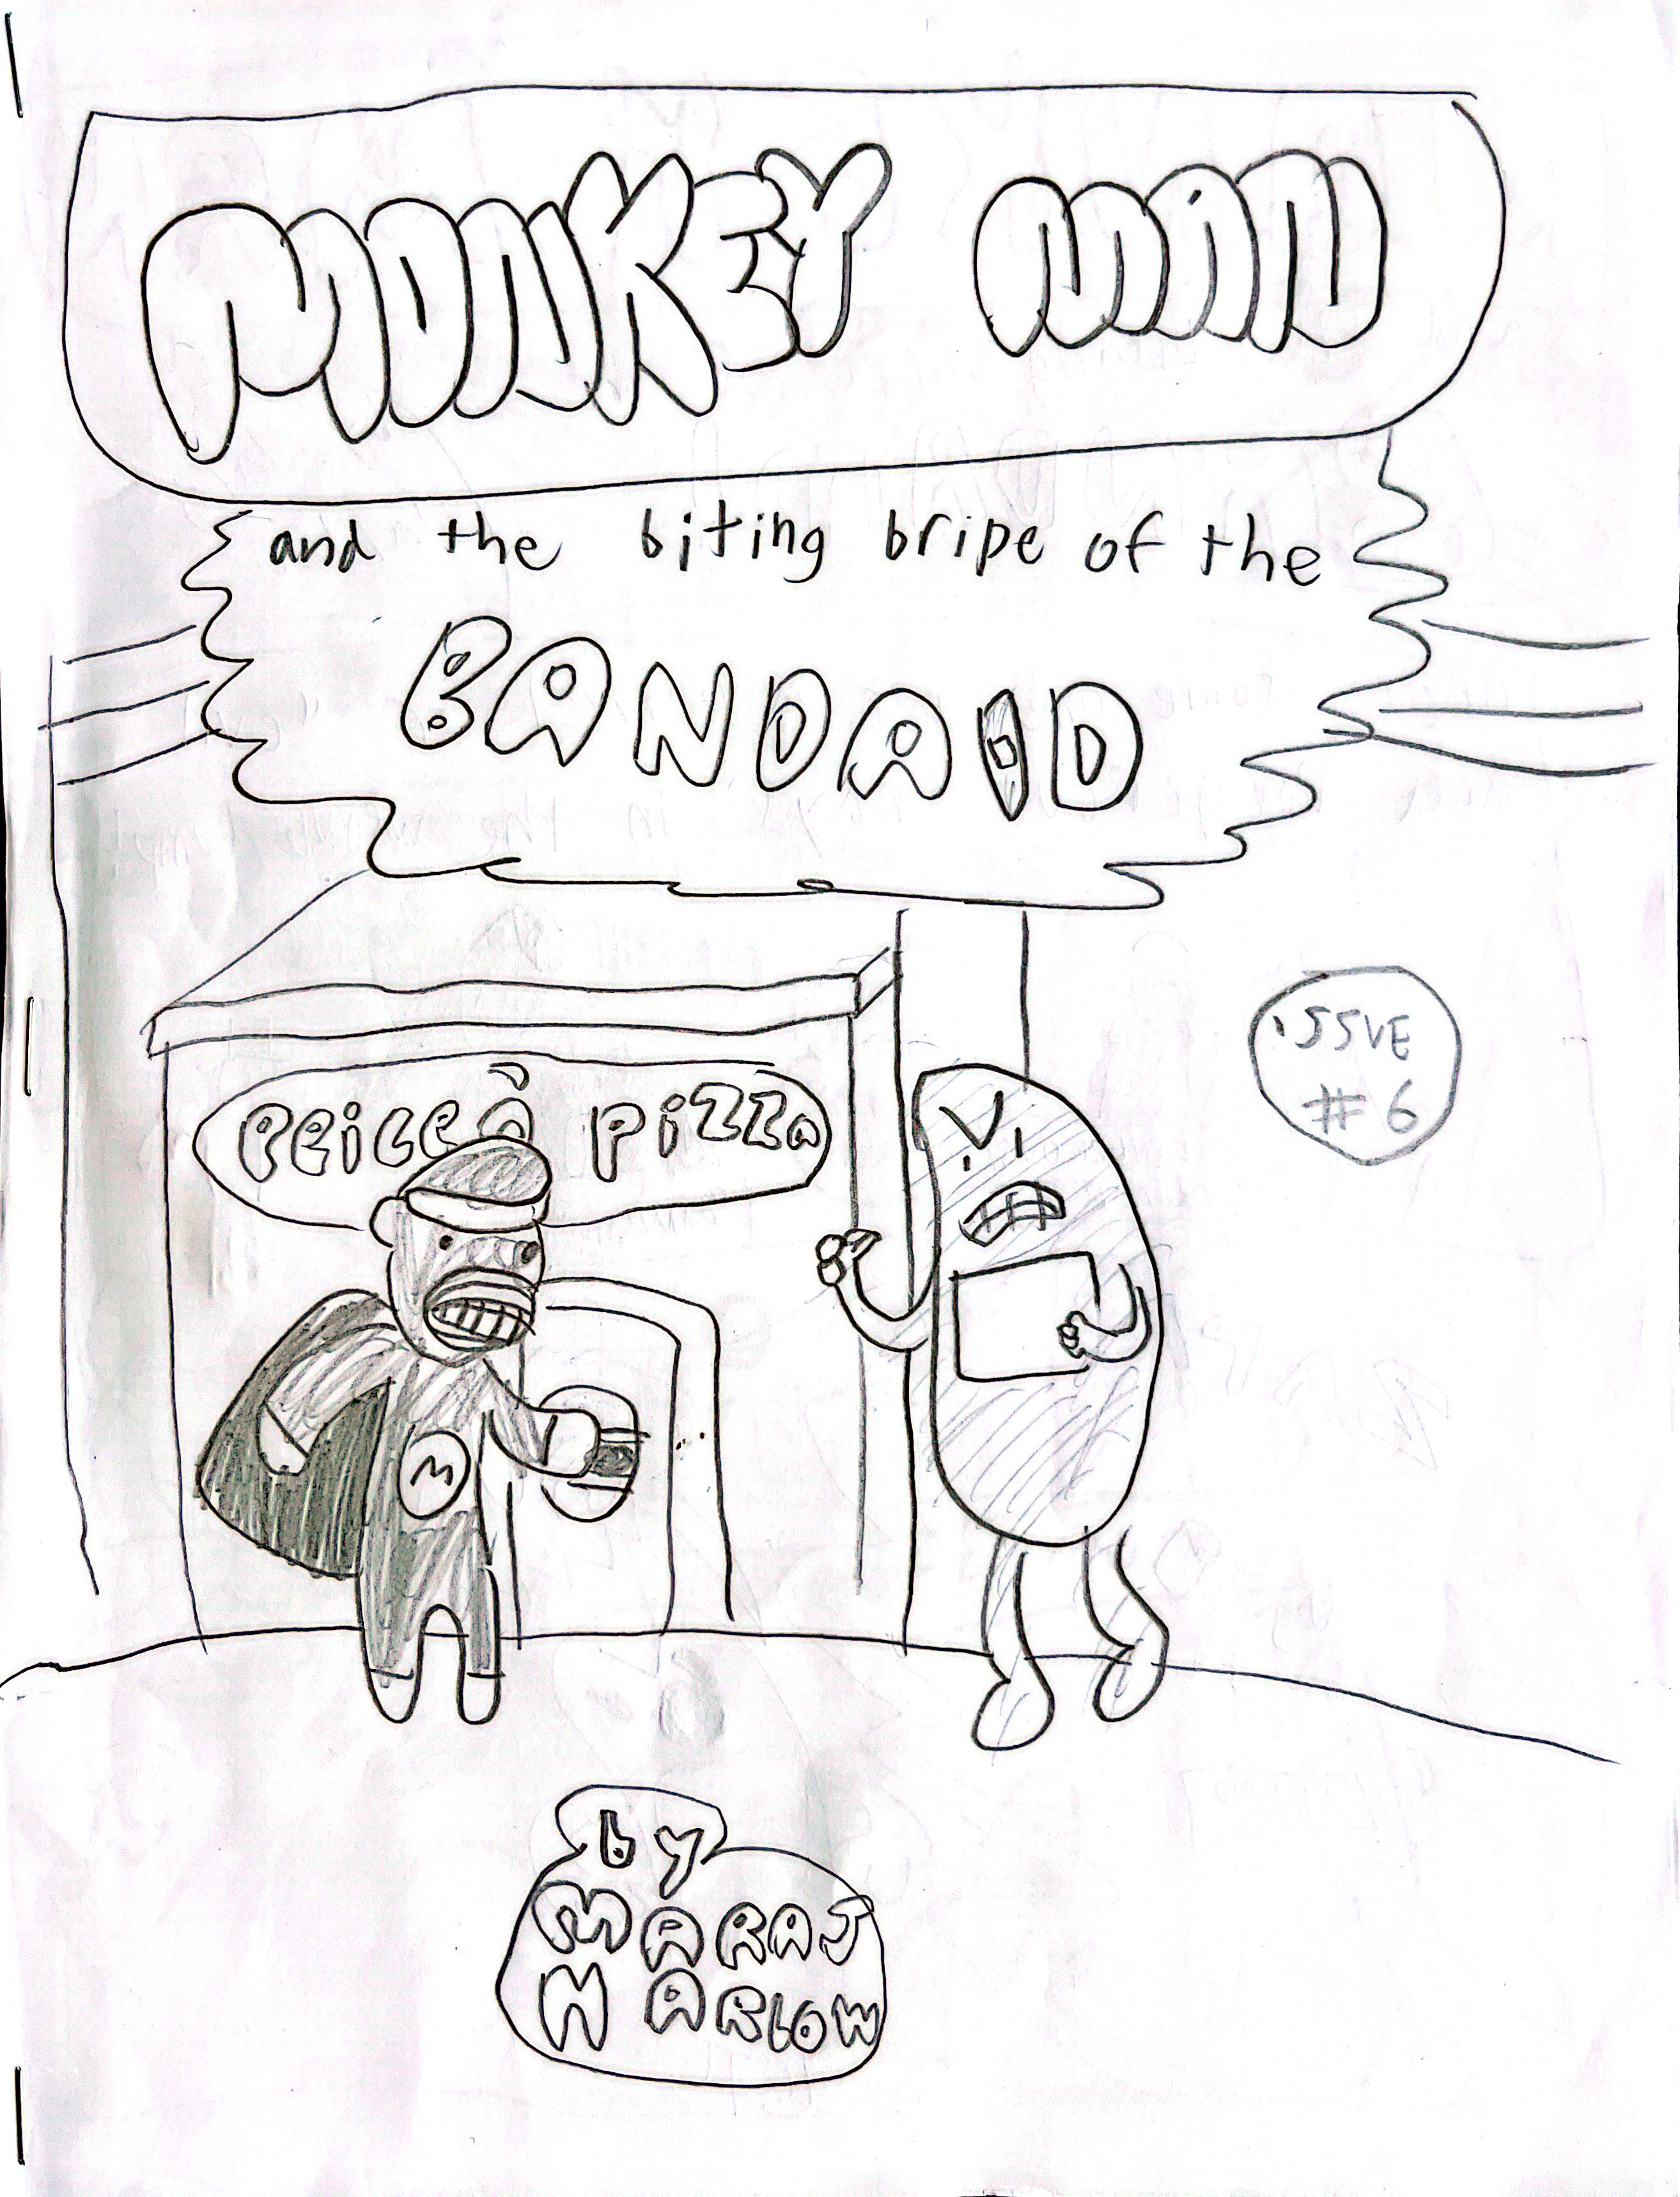 MONKEY MAN
and the biting bripe of the
BANDAID
ISSVE
#6
PEiCE A PiZZa
M
by
MARAJ
HARLOW